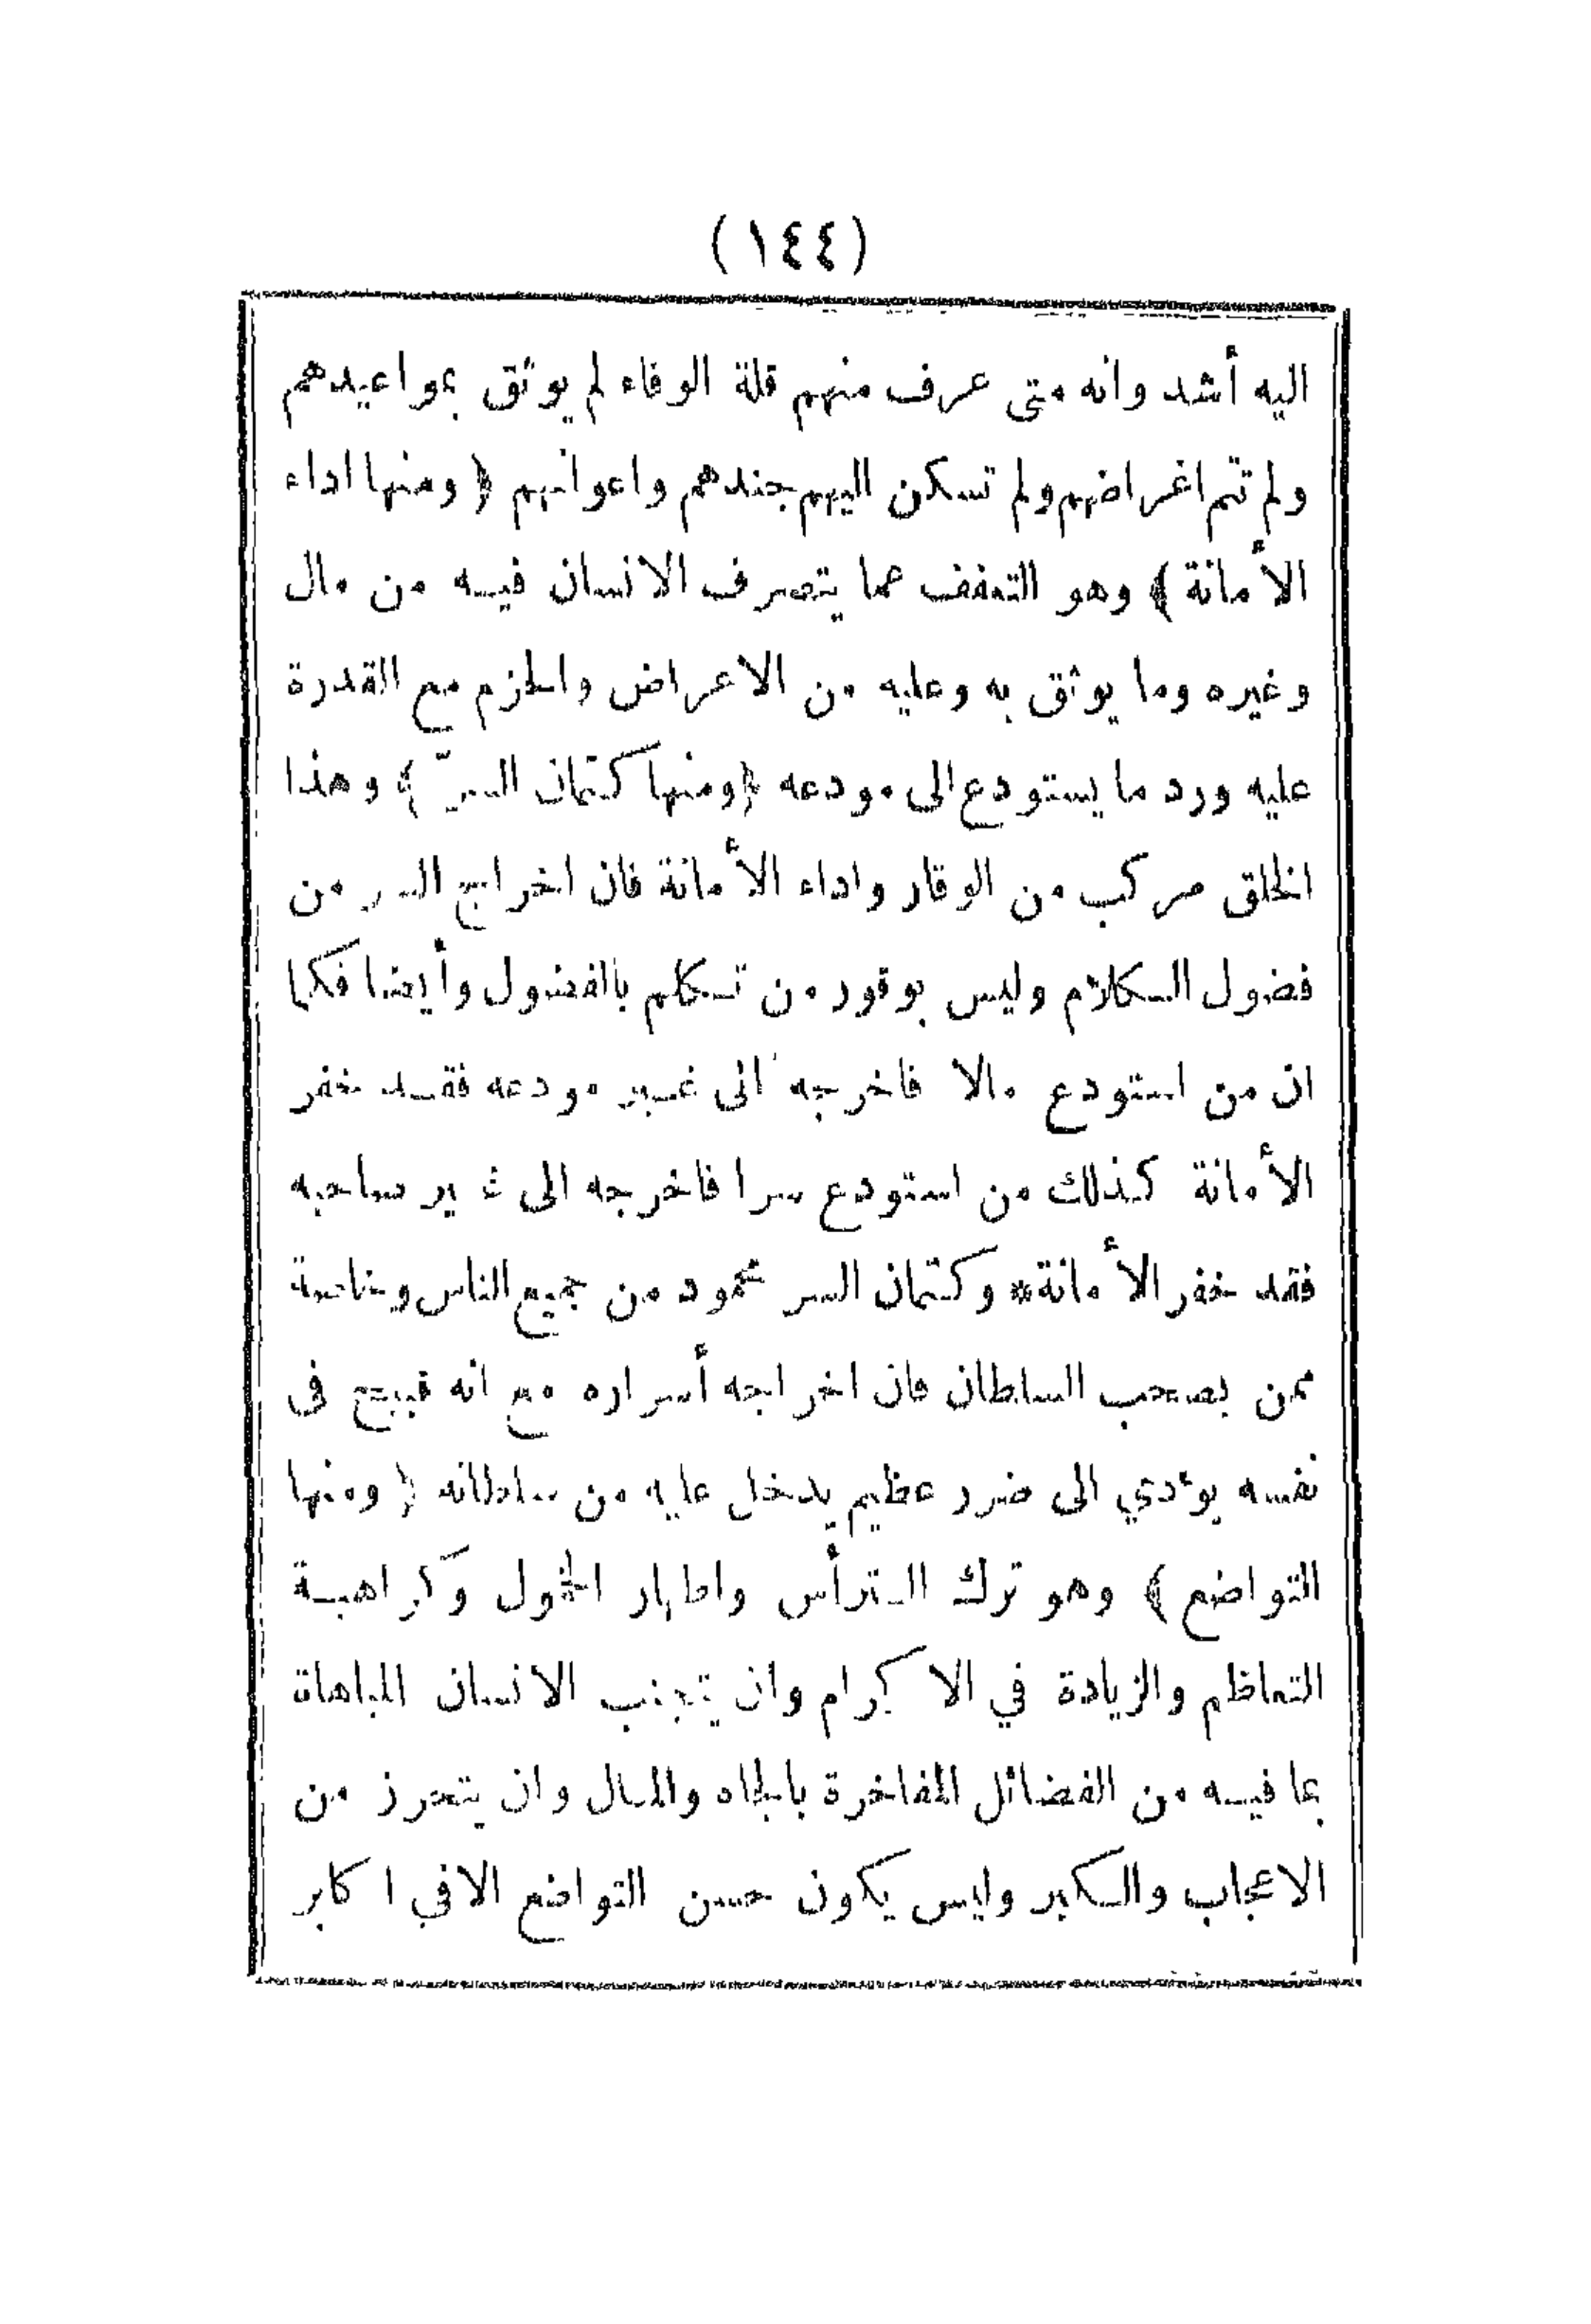 (١٤٤)
اليه أشد وانه متى عرف منهم قلة الوفاء لم يوثق بمواعيدهم
ولم تتم اغراضهم ولم تسكن اليهم جندهم واعوانهم ﴿ ومنها اداء
الأمانة ﴾ وهو التعفف عما يتصرف الانسان فيه من مال
وغيره وما يوثق به وعليه من الاعراض والحزم مع القدرة
عليه ورد ما يستودع الى مودعه ﴿ ومنها كتمان السرّ ﴾ وهذا
الخلق مركب من الوقار واداء الأمانة فان اخراج السر من
فضول الكلام وليس بوقور من تكلم بالفضول وأيضا فكما
ان من استودع مالا فاخرجه الى غير مودعه فقد خفر
الأمانة كذلك من استودع سرا فاخرجه الى غير صاحبه
فقد خفر الأمانة * وكتمان السر محمود من جميع الناس وخاصة
ممن يصحب السلطان فان اخراجه أسراره مع انه قبيح في
نفسه يؤدي الى ضرر عظيم يدخل عليه من سلطانه ﴿ ومنها
التواضع ﴾ وهو ترك الترأس واظهار الخمول وكراهية
التعاظم والزيادة في الاكرام وان يتجنب الانسان المباهاة
بما فيه من الفضائل المفاخرة بالجاه والمال وان يتحرز من
الاعجاب والكبر وليس يكون حسن التواضع الا في اكابر